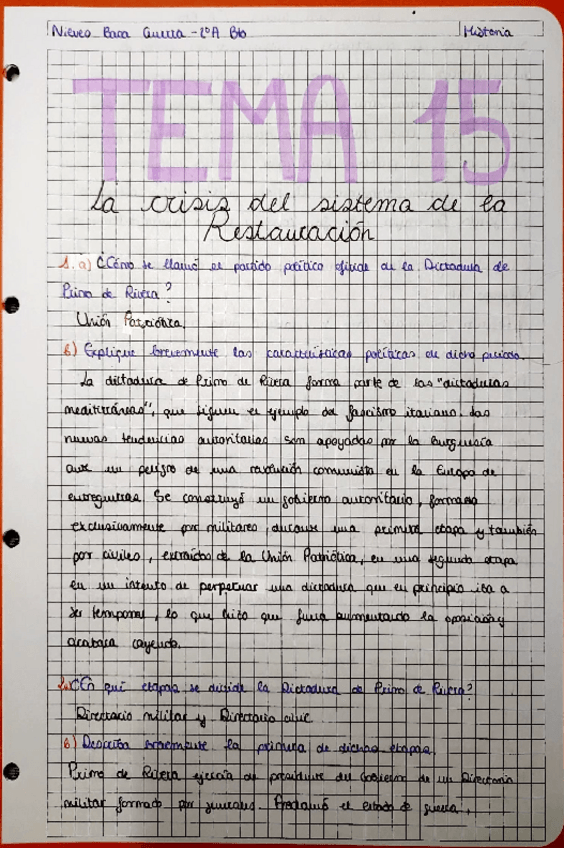 Nieves Baca Guerra - 2ºA Bto
Historia
TEMA 15
La crisis del sistema de la
Restauración
1. a) ¿Cómo se llamó el partido político oficial de la Dictadura de
Primo de Rivera?
Unión Patriótica.
b) Explique brevemente las características políticas de dicho periodo.
La dictadura de Primo de Rivera forma parte de las "dictaduras
mediterráneas", que siguen el ejemplo del fascismo italiano. Las
nuevas tendencias autoritarias son apoyadas por la burguesía
ante un peligro de una revolución comunista en la Europa de
entreguerras. Se constituyó un gobierno autoritario, formado
exclusivamente por militares, durante una primera etapa y también
por civiles, extraídos de la Unión Patriótica, en una segunda etapa
en un intento de perpetuar una dictadura que en principio iba a
ser temporal, lo que hizo que fuera aumentando la oposición y
acabara cayendo.
2. ¿En qué etapas se divide la Dictadura de Primo de Rivera?
Directorio militar y Directorio civil
b) Describa brevemente la primera de dichas etapas.
Primo de Rivera ejercía de presidente del Gobierno de un Directorio
militar formado por generales. Proclamó el estado de guerra,